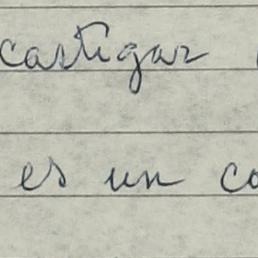 castigar
es un co